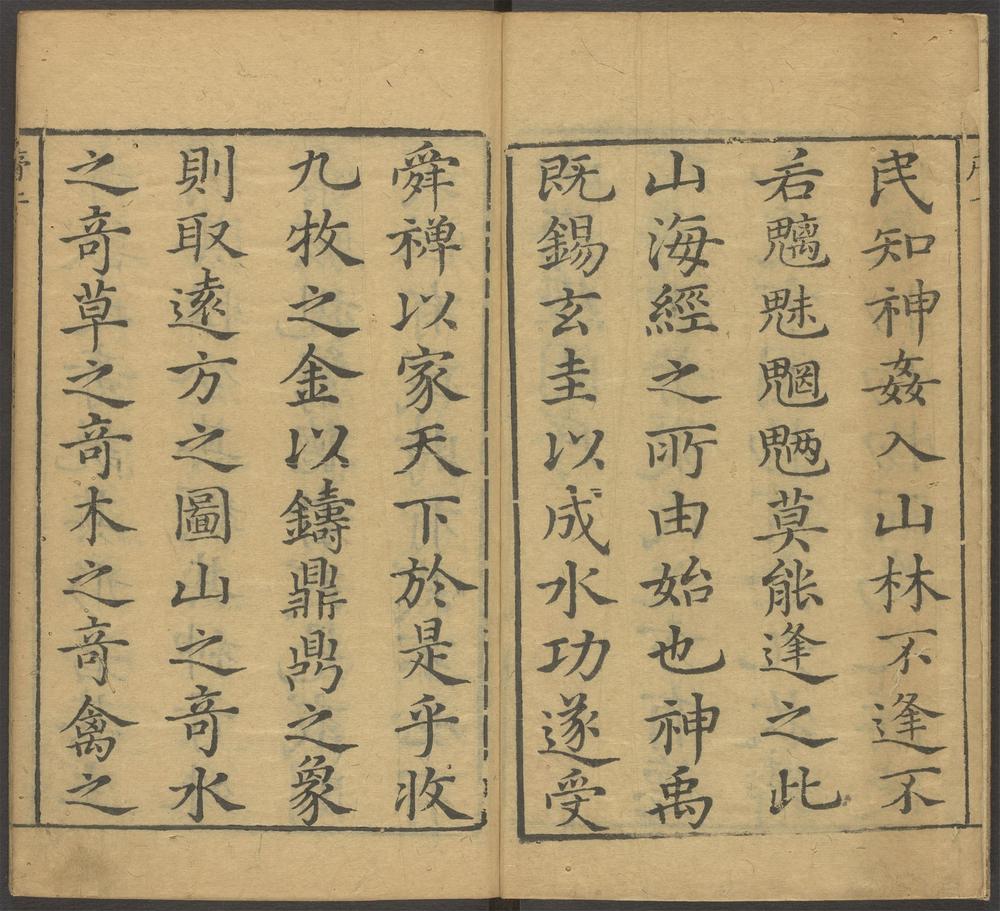 民知神姦入山林不逢不
若魑魅魍魎莫能逢之此
山海經之所由始也神禹
既錫玄圭以成水功遂受
舜禪以家天下於是乎收
九牧之金以鑄鼎鼎之象
則取遠方之圖山之奇水
之奇草之奇木之奇禽之